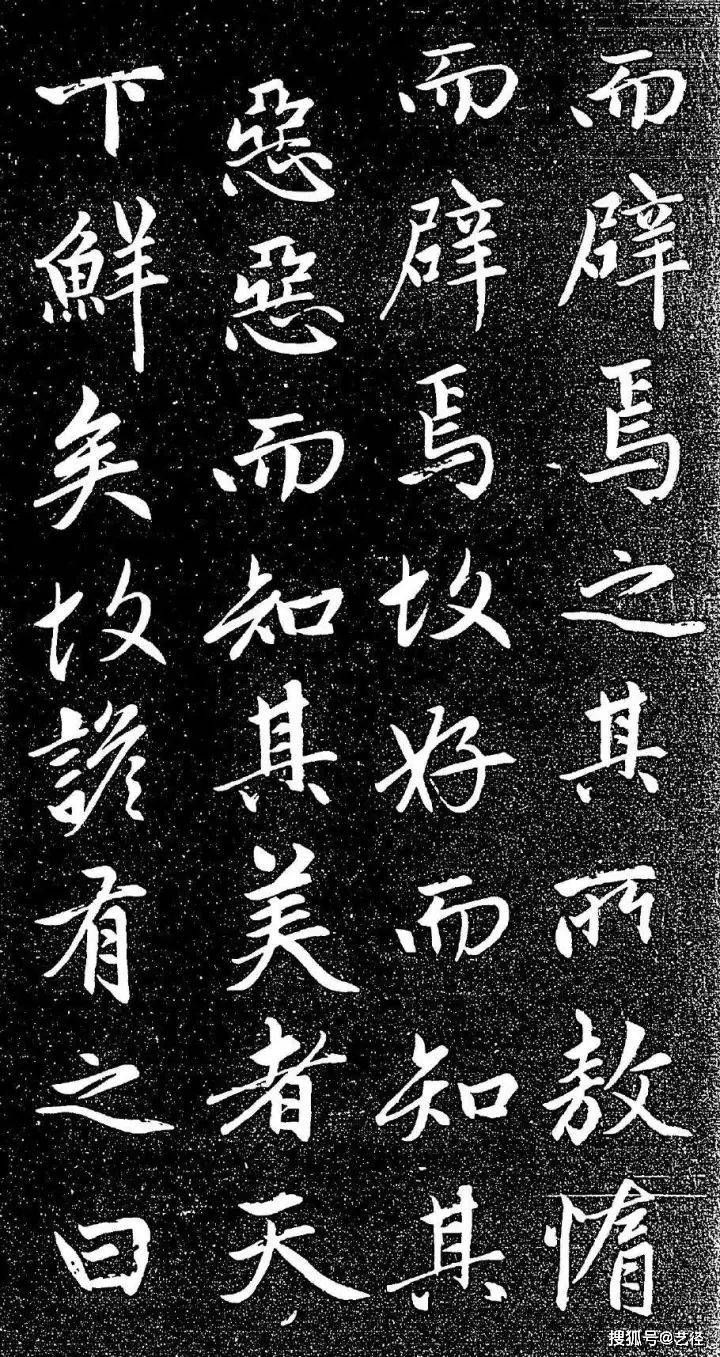 而辟焉之其所敖惰
而辟焉故好而知其
惡惡而知其美者天
下鮮矣故諺有之曰
搜狐号@艺径